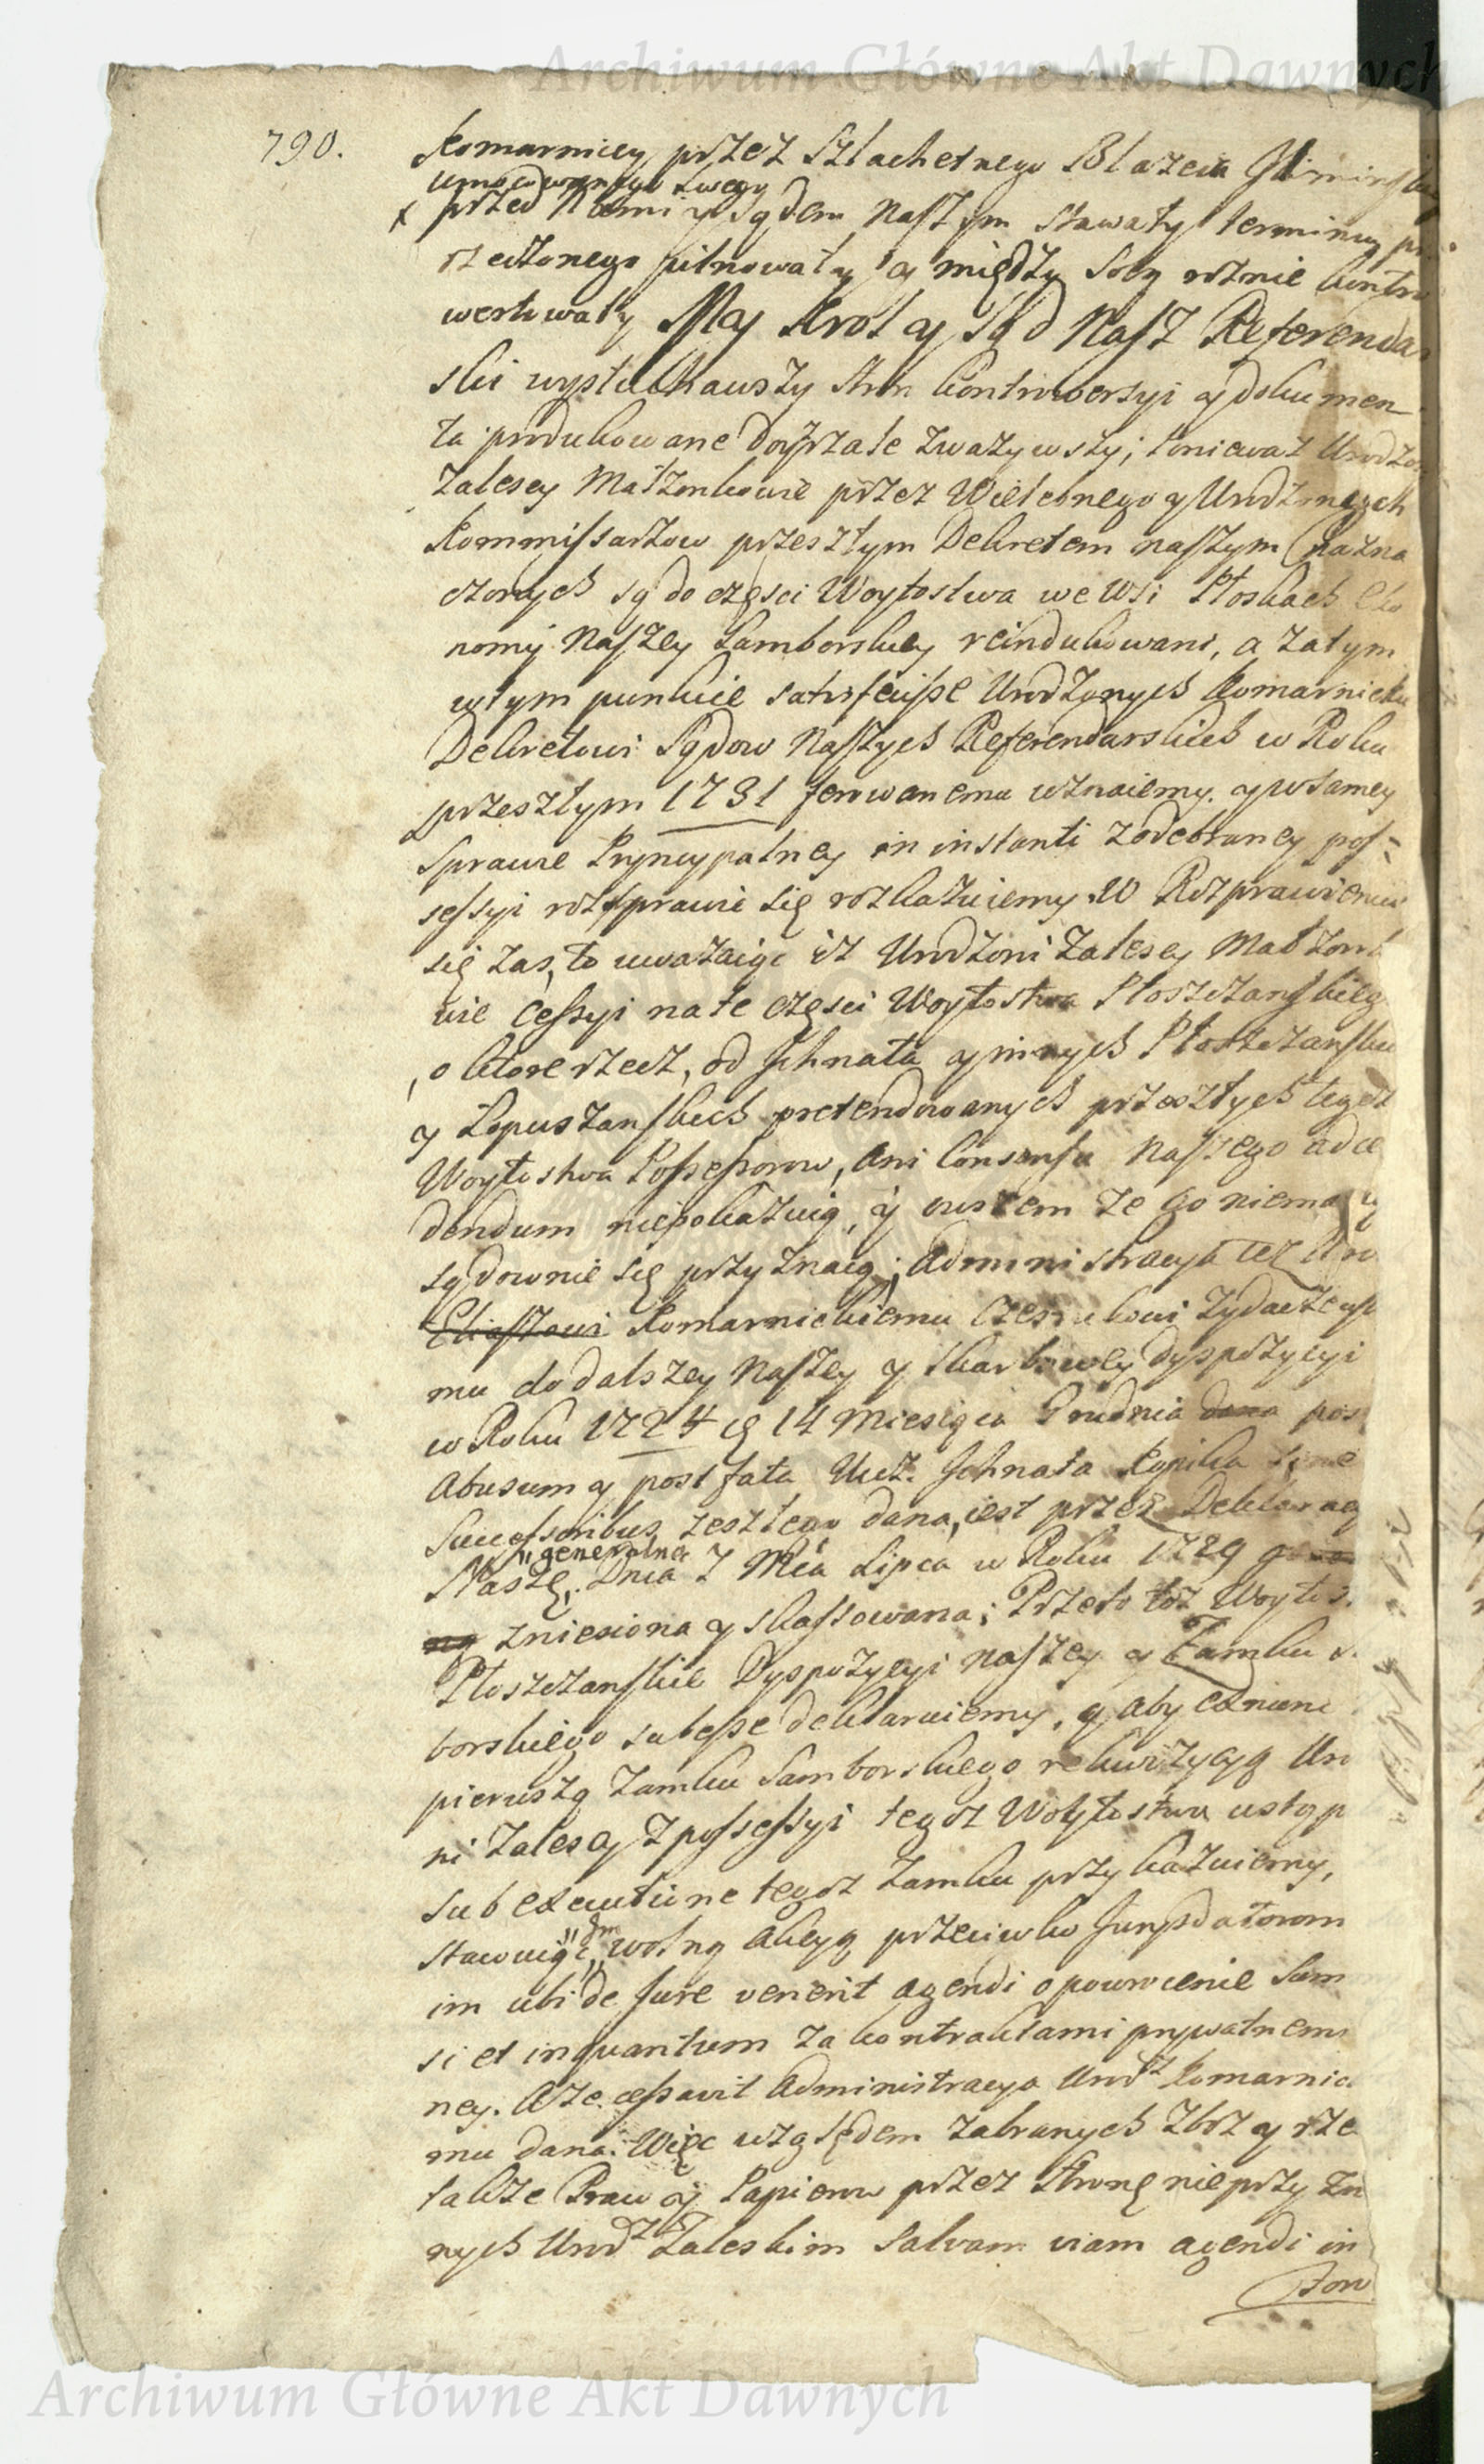 Archiwum Główne Akt Dawnych
790.
Komarniccy przez Szlachetnego Błażeia
umocowanego swego
x przed Nami y Sądem Naszym stawały terminu
rzeczonego pilnowały y między sobą rożnie kontro
wertowały My Krol y Sąd Nasz Referendar
ski wysłuchawszy stron kontrowersyi y dokumen
ta produkowane doyrzale zważywszy; Ponieważ Urodze
Zalescy Małżonkowie przez Wielebnego y Urodzonych
Kommissarzow przeszłym Dekretem naszym nazna
czonych są do części Woytostwa we Wsi Płoskach Eko
nomij Naszey Samborskiey reindukowani, a zatym
w tym punkcie satisfecisse Urodzonych Komarnickich
Dekretowi Sądow Naszych Referendarskich w Roku
przeszłym 1731 ferowanemu uznaiemy. y w samey
Sprawie Pryncypalney in instanti z odebraney pos=
sessyi rozprawić się rozkazuiemy. W Rozprawieniu
się zas, to uważaiąc iż Urodzeni Zalescy Małżonk
wie Cessyi na te części Woytostwa Płoszczanskieg
, o ktore rzecz, od Jchnata y innych Płoszczanskich
y Łopuszanskich pretendowanych przeszłych tegoż
Woytostwa Possessorow, ani Consensu Naszego ad ce
dendum niepokazuią, y owszem że go niemaią
sądownie się przyznaią; Administracya też Uro
Eliaszowi Komarnickiemu Czesnikowi Zydaczewsk
mu do dalszey Naszey y Skarbowey dyspozycyi
w Roku 1724 14 Miesiąca Grudnia dana post
Abusum y post fata Ucz. Jchnata Kopika sine
Successoribus zeszłego dana, iest przez Deklarac
"generalną
Naszę, Dnia 7 Mca Lipca w Roku 1729
zniesiona y skassowana; Przeto toż Woytos.
Płoszczanskie Dyspozycyi naszey y Zamku S.
borskiego subesse deklaruiemy, y aby
pierwszą Zamku Samborskiego rekwizycyą Uro
ni Zalescy z possessyi tegoż Woytostwa ustąp
sub executione tegoż Zamku przykazuiemy,
stawuiąc wolną akcyą przeciwko Jurisdatorom
im ubi de Jure venerit agendi o powrocenie Sum
si et inquantum za kontraktami prywatnemi
ney. A że cessavit Administracya Urodz Komarnic
mu dana. Więc względem zabranych zboż y rze
także Praw y Papierow przez stronę nieprzyzn
nych Urodz Zaleskim salvam viam agendi in
Archiwum Główne Akt Dawnych